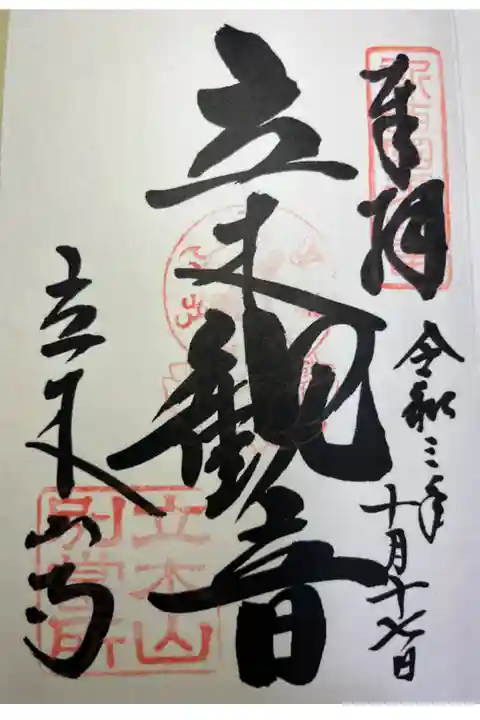 奉拝
令和三年
十月十七日
立木観音
立木山寺
立木山
別當所